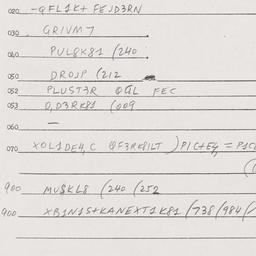 020 -QFL1K+ FEJD3RN
030 GRIVM7
040 PUL8K81 (240
050 DROJP (212
052 PLUST3R @QL FEC
053 0,D3RK81 (009
060 —
070 XOL1DE4,C @F3RK8ILT )PIC+E4 = P1C
(
900 MU8KL8 (240 (252
900 XB1N1S+KANEXT1K81 (738 (984 /